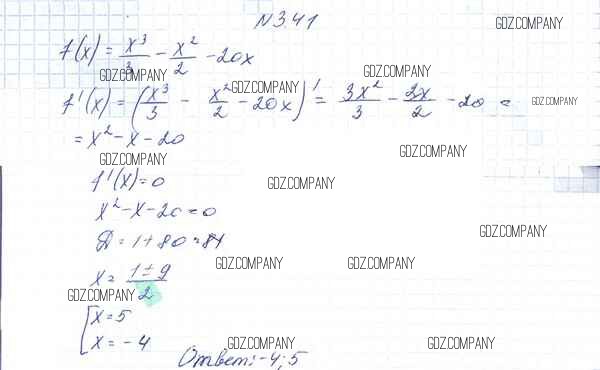 N 3.41
GDZ.COMPANY
f(x) = x³/3 - x²/2 - 20x
GDZ.COMPANY GDZ.COMPANY
GDZ.COMPANY
f'(x) = (x³/3 - x²/2 - 20x)' = 3x²/3 - 2x/2 - 20 =
GDZ.COMPANY
= x² - x - 20
GDZ.COMPANY GDZ.COMPANY
f'(x) = 0
GDZ.COMPANY
x² - x - 20 = 0
GDZ.COMPANY
Д = 1 + 80 = 81
GDZ.COMPANY GDZ.COMPANY
x = (1 ± 9)/2
GDZ.COMPANY
[x = 5
x = -4
GDZ.COMPANY GDZ.COMPANY
Ответ: -4; 5